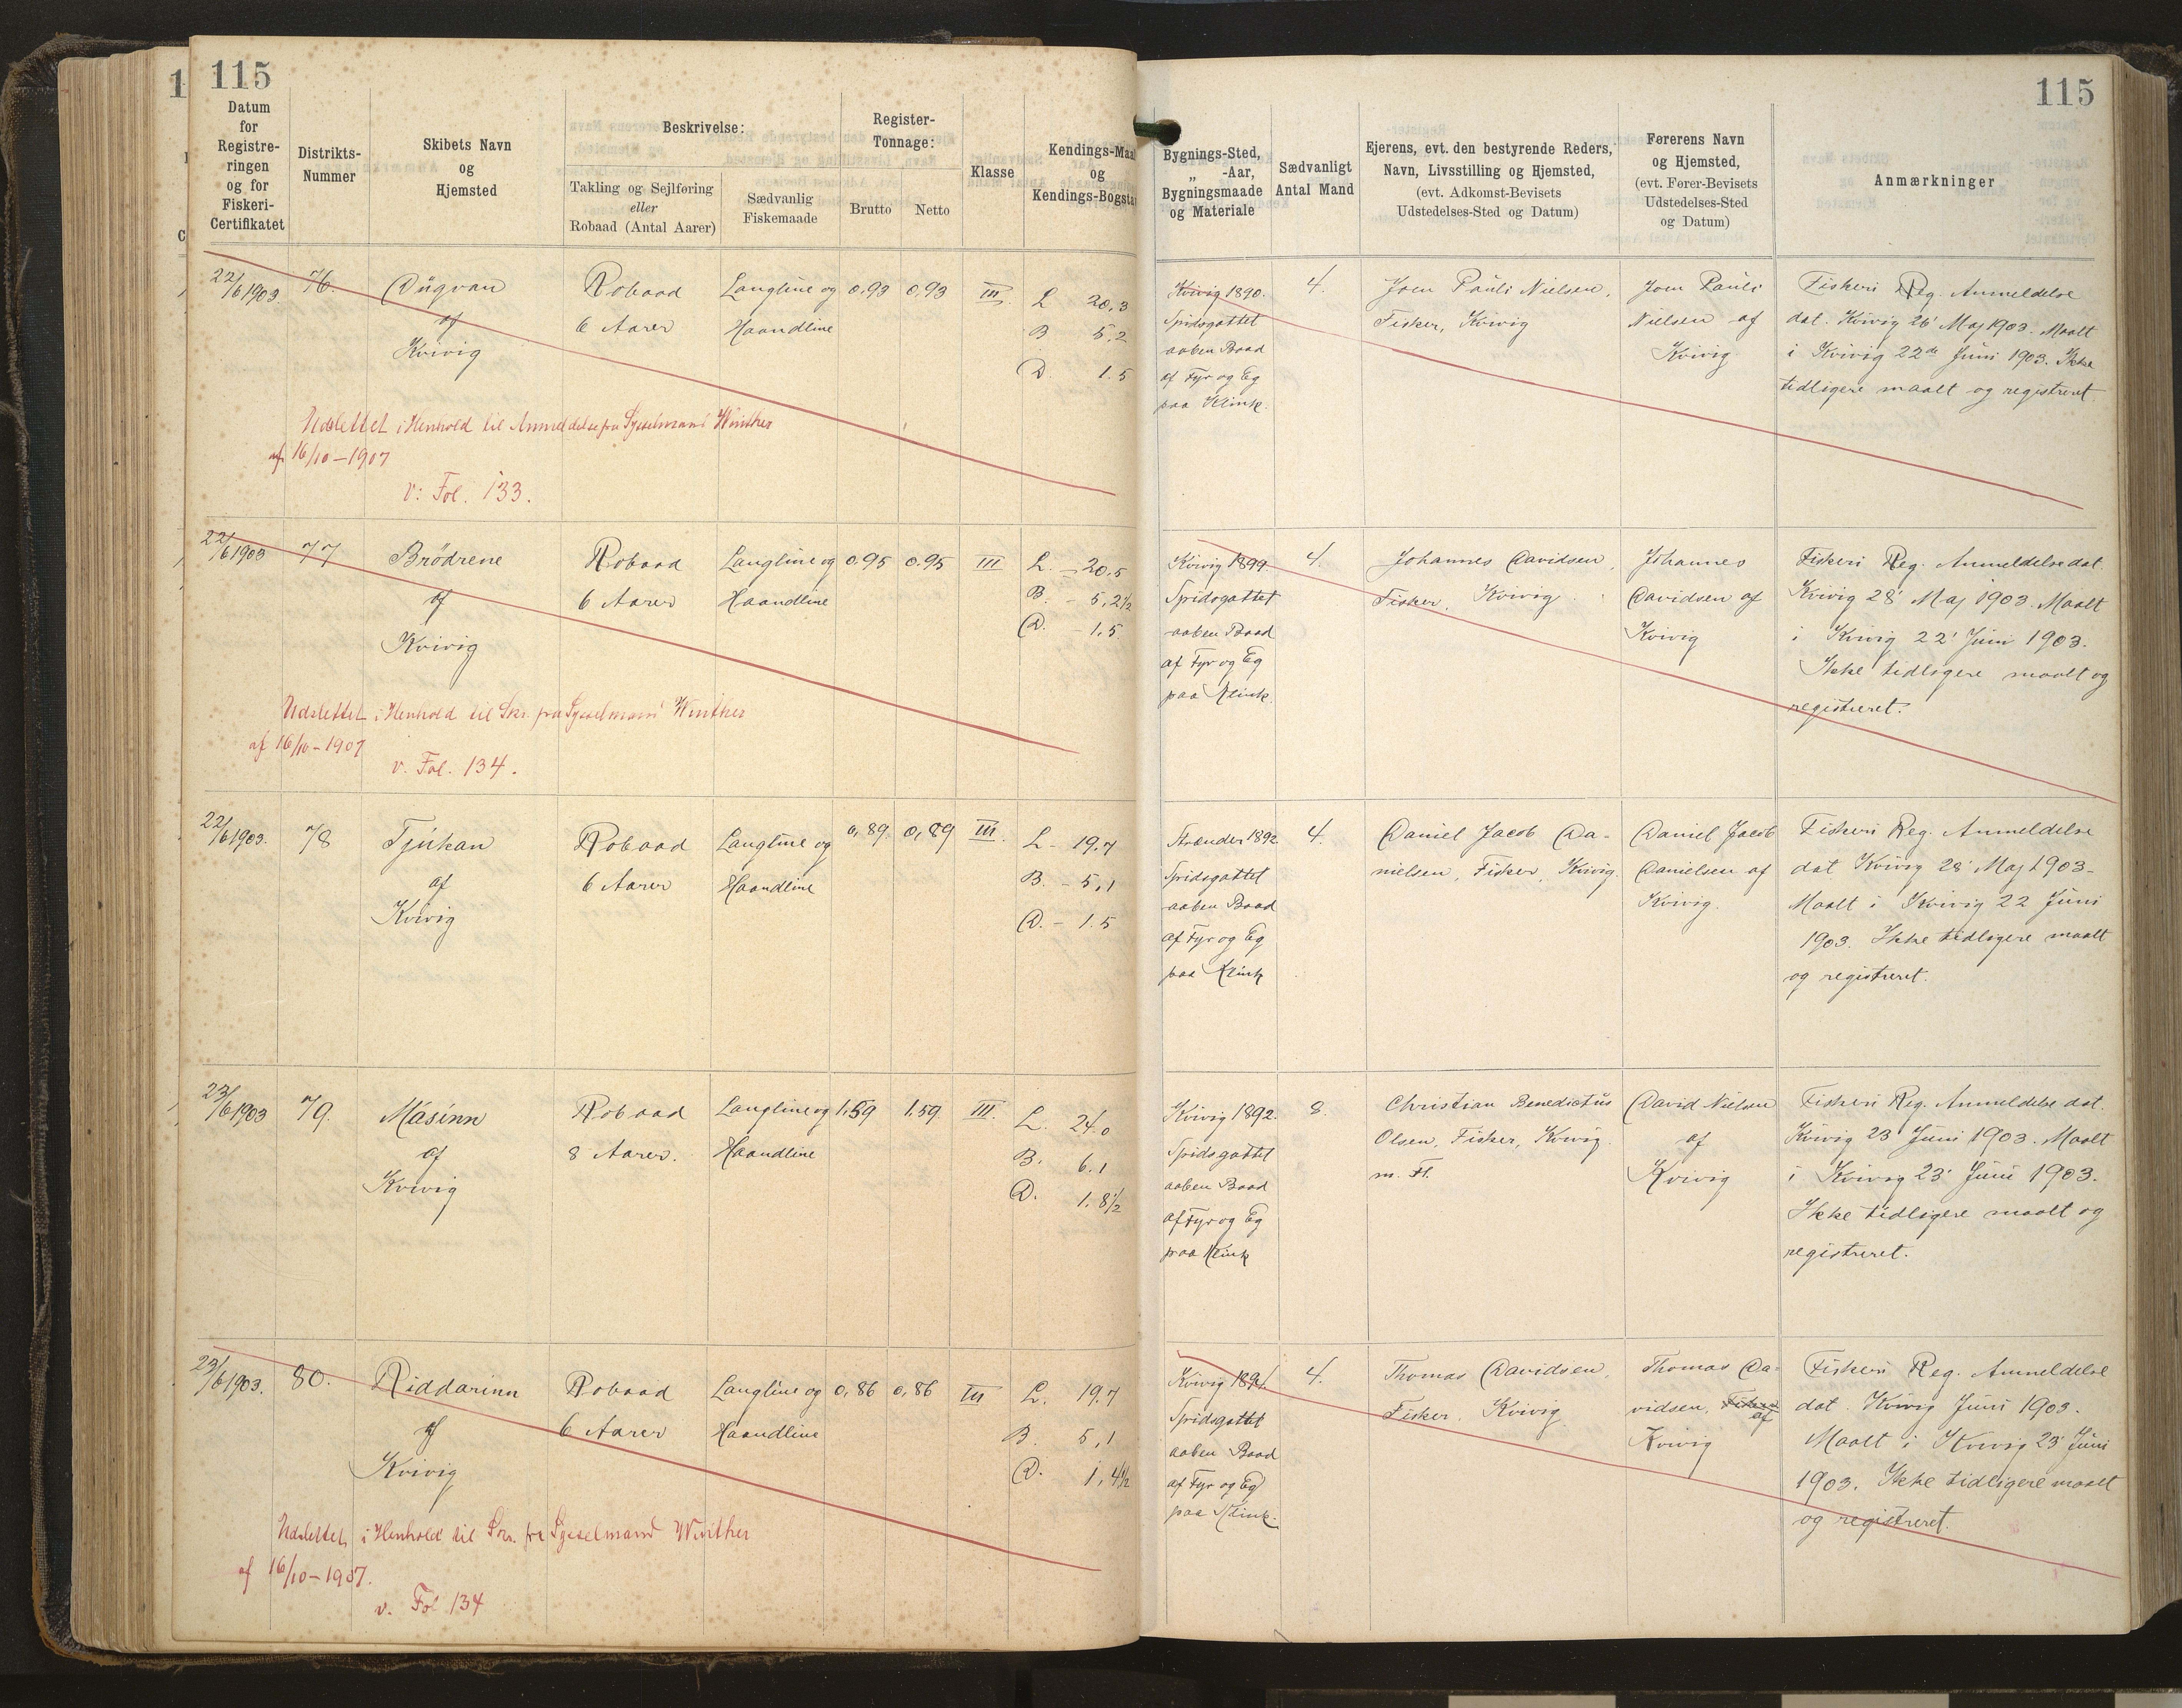 115
115
Datum for Registreringen og for Fiskeri-Certifikatet
Distrikts-Nummer
Skibets Navn og Hjemsted
Beskrivelse:
Takling og Sejlføring eller Robaad (Antal Aarer)
Sædvanlig Fiskemaade
Register-Tonnage:
Brutto
Netto
Klasse
Kendings-Maal og Kendings-Bogsta
Bygnings-Sted, „ -Aar, Bygningsmaade og Materiale
Sædvanligt Antal Mand
Ejerens, evt. den bestyrende Reders, Navn, Livsstilling og Hjemsted, (evt. Adkomst-Bevisets Udstedelses-Sted og Datum)
Førerens Navn og Hjemsted, (evt. Fører-Bevisets Udstedelses-Sted og Datum)
Anmærkninger
22/6 1903. 76. Dúgvan Robaad Langline og 0,93 0,93 III. L 20,3
af 6 Aarer Haandline B 5,2
Kvivig D. 1.5
Udslettet i Henhold til Anmeldelse fra Sysselmand Winther
af 16/10-1907
v: Fol. 133.
Kvivig 1890.
Spidsgattet
aaben Baad
af Fyr og Eg
paa Klink.
4.
Joen Pauli Nielsen,
Fisker, Kvivig
Joen Pauli
Nielsen af
Kvivig
Fiskeri Reg. Anmeldelse
dat. Kvivig 26' Maj 1903. Maalt
i Kvivig 22de Juni 1903. Ikke
tidligere maalt og registreret
22/6 1903 77 Brödrene Robaad Langline og 0.95 0.95 III L. - 20,5
af 6 Aarer Haandline B. - 5,2½
Kvivig D. - 1,5.
Udslettet i Henhold til Skr. fra Sysselmand Winther
af 16/10-1907
v. Fol. 134.
Kvivig 1899.
Spidsgattet
aaben Baad
af Fyr og Eg
paa Klink.
4.
Johannes Davidsen,
Fisker, Kvivig.
Johannes
Davidsen af
Kvivig
Fiskeri Reg. Anmeldelse dat.
Kvivig 28' Maj 1903. Maalt
i Kvivig 22' Juni 1903.
Ikke tidligere maalt og
registreret.
22/6 1903. 78 Tjúkan Robaad Langline og 0,89. 0,89 III. L - 19.7
af 6 Aarer Haandline B. - 5,1
Kvivig D. - 1.5
Strænder 1892
Spidsgattet
aaben Baad
af Fyr og Eg
paa Klink
4.
Daniel Jacob Da-
nielsen, Fisker, Kvivig.
Daniel Jacob
Danielsen af
Kvivig.
Fiskeri Reg. Anmeldelse
dat Kvivig 28' Maj 1903-
Maalt i Kvivig 22 Juni
1903. Ikke tidligere maalt
og registreret.
23/6 1903 79. Másinn Robaad Langline og 1.59 1.59 III. L. 24.0
af 8 Aarer. Haandline B. 6.1
Kvivig D. 1.8½
Kvivig 1892.
Spidsgattet
aaben Baad
af Fyr og Eg
paa Klink
8.
Christian Benedictus
Olsen, Fisker, Kvivig.
m. Fl.
David Nielsen
af
Kvivig
Fiskeri Reg. Anmeldelse dat.
Kvivig 23 Juni 1903. Maalt
i Kvivig 23' Juni 1903.
Ikke tidligere maalt og
registreret.
23/6 1903. 80. Riddarinn Robaad Langline og 0,86 0,86 III L. 19.7
af 6 Aarer Haandline B. 5,1
Kvivig D. 1,4½
Udslettet i Henhold til Skr. fra Sysselmand Winther
af 16/10-1907.
v. Fol 134
Kvivig
Spidsgattet
aaben Baad
af Fyr og Eg
paa Klink.
4.
Thomas Davidsen,
Fisker, Kvivig
Thomas Da-
vidsen, Fisker af
Kvivig
Fiskeri Reg. Anmeldelse
dat. Kvivig Juni 1903.
Maalt i Kvivig 23' Juni
1903. Ikke tidligere maalt
og registreret.